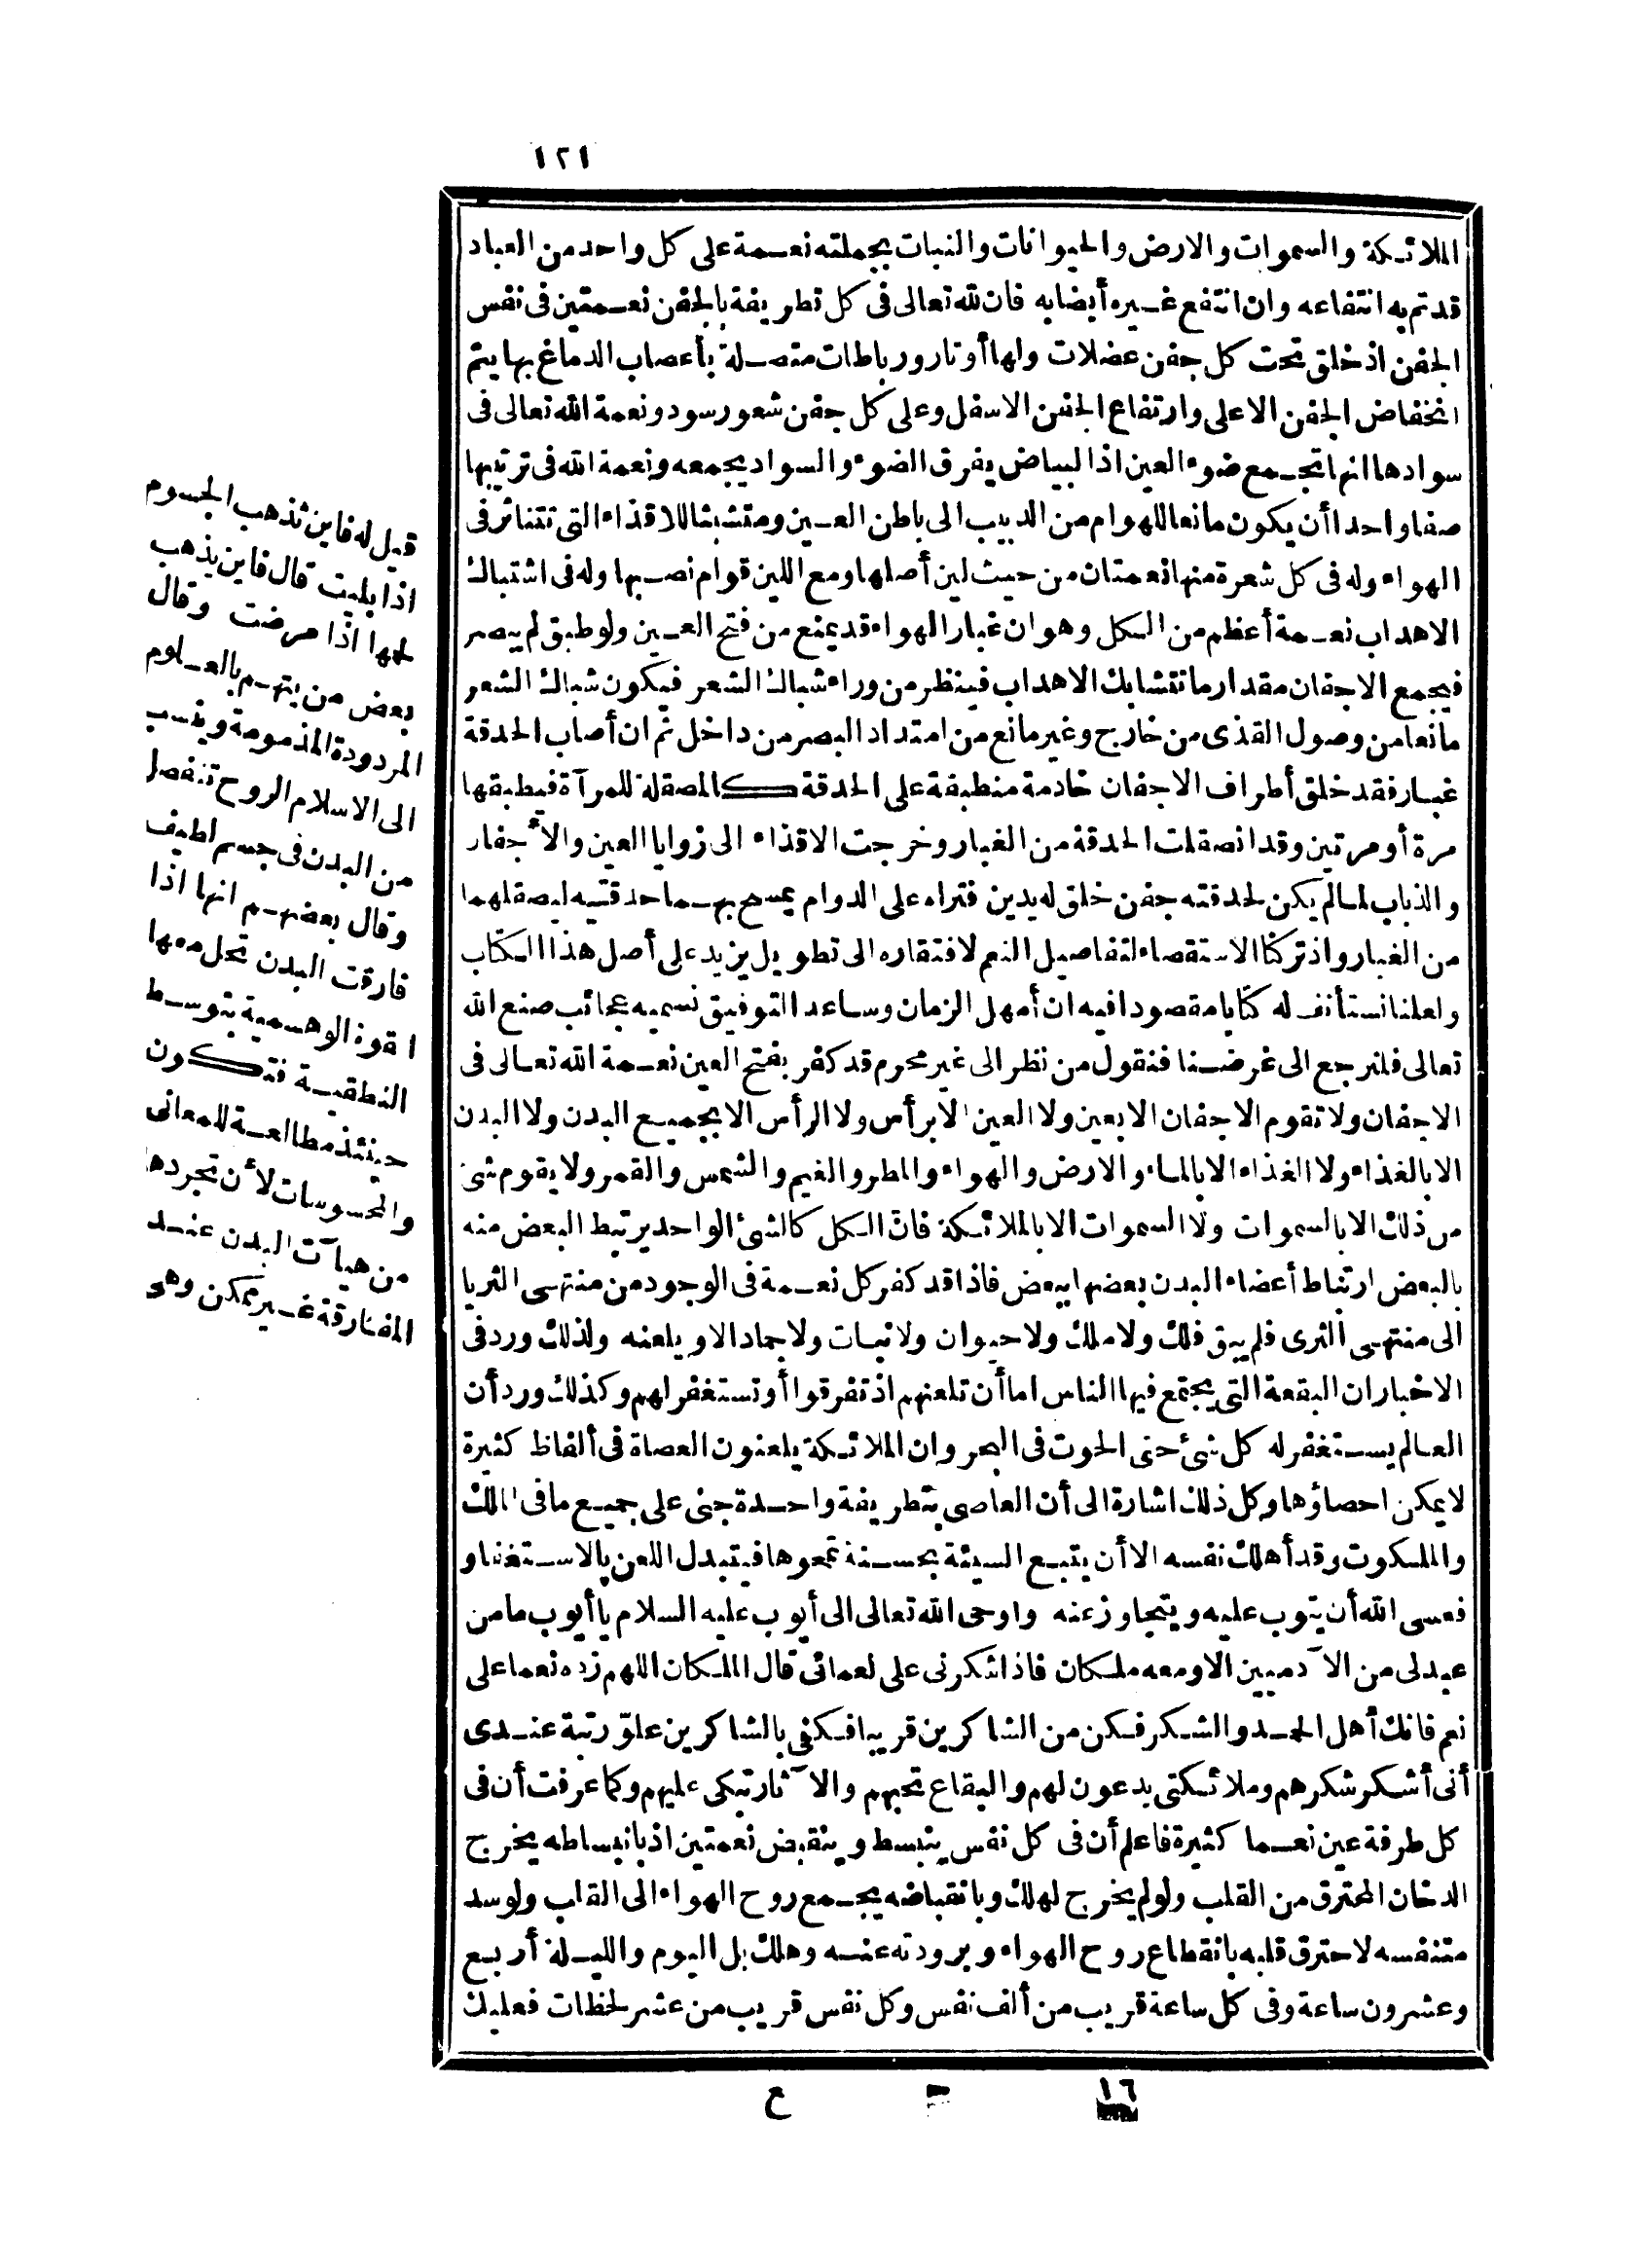 ١٢١
الملائكة والسموات والارض والحيوانات والنبات بجملته نعمة على كل واحد من العباد
قد تم به انتفاعه وان انتفع غيره أيضا به فان لله تعالى فى كل تطريفة بالجفن نعمتين فى نفس
الجفن اذ خلق تحت كل جفن عضلات ولها أوتار ورباطات متصلة بأعصاب الدماغ بها يتم
انخفاض الجفن الاعلى وارتفاع الجفن الاسفل وعلى كل جفن شعور سود ونعمة الله تعالى فى
سوادها انها تجمع ضوء العين اذ البياض يفرق الضوء والسواد يجمعه ونعمة الله فى ترتيبها
صفا واحدا أن يكون مانعا للهوام من الدبيب الى باطن العين ومتشبثا للاقذاء التى تتناثر فى
الهواء وله فى كل شعرة منها نعمتان من حيث لين أصلها ومع اللين قوام نصبها وله فى اشتباك
الاهداب نعمة أعظم من الكل وهو ان غبار الهواء قد يمنع من فتح العين ولو طبق لم يبصر
فيجمع الاجفان مقدار ما تتشابك الاهداب فينظر من وراء شباك الشعر فيكون شباك الشعر
مانعا من وصول القذى من خارج وغير مانع من امتداد البصر من داخل ثم ان أصاب الحدقة
غبار فقد خلق أطراف الاجفان خادمة منطبقة على الحدقة كالمصقلة للمرآة فيطبقها
مرة أو مرتين وقد انصقلت الحدقة من الغبار وخرجت الاقذاء الى زوايا العين والأجفان
والذباب لما لم يكن لحدقته جفن خلق له يدين فتراه على الدوام يمسح بهما حدقتيه ليصقلهما
من الغبار واذ تركنا الاستقصاء لتفاصيل النعم لافتقاره الى تطويل يزيد على أصل هذا الكتاب
ولعلنا نستأنف له كتابا مقصودا فيه ان أمهل الزمان وساعد التوفيق نسميه عجائب صنع الله
تعالى فلنرجع الى غرضنا فنقول من نظر الى غير محرم قد كفر بفتح العين نعمة الله تعالى فى
الاجفان ولا تقوم الاجفان الا بعين ولا العين الا برأس ولا الرأس الا بجميع البدن ولا البدن
الا بالغذاء ولا الغذاء الا بالماء والارض والهواء والمطر والغيم والشمس والقمر ولا يقوم شئ
من ذلك الا بالسموات ولا السموات الا بالملائكة فان الكل كالشئ الواحد يرتبط البعض منه
بالبعض ارتباط أعضاء البدن بعضها ببعض فاذا قد كفر كل نعمة فى الوجود من منتهى الثريا
الى منتهى الثرى فلم يبق فلك ولا ملك ولا حيوان ولا نبات ولا جماد الا ويلعنه ولذلك ورد فى
الاخبار ان البقعة التى يجتمع فيها الناس اما أن تلعنهم اذ تفرقوا أو تستغفر لهم وكذلك ورد أن
العالم يستغفر له كل شئ حتى الحوت فى البحر وان الملائكة يلعنون العصاة فى ألفاظ كثيرة
لا يمكن احصاؤها وكل ذلك اشارة الى أن العاصى بتطريفة واحدة جنى على جميع ما فى الملك
والملكوت وقد أهلك نفسه الا أن يتبع السيئة بحسنة تمحوها فيتبدل اللعن بالاستغفار
فعسى الله أن يتوب عليه ويتجاوز عنه وأوحى الله تعالى الى أيوب عليه السلام يا أيوب ما من
عبد لى من الآدميين الا ومعه ملكان فاذا شكرنى على نعمائى قال الملكان اللهم زده نعما على
نعم فانك أهل الحمد والشكر فكن من الشاكرين قريبا فكفى بالشاكرين علو رتبة عندى
أنى أشكر شكرهم وملائكتى يدعون لهم والبقاع تحبهم والآثار تبكى عليهم وكما عرفت أن فى
كل طرفة عين نعما كثيرة فاعلم أن فى كل نفس ينبسط وينقبض نعمتين اذ بانبساطه يخرج
الدخان المحترق من القلب ولو لم يخرج لهلك وبانقباضه يجمع روح الهواء الى القلب ولو سد
متنفسه لاحترق قلبه بانقطاع روح الهواء وبرودته عنه وهلك بل اليوم والليلة أربع
وعشرون ساعة وفى كل ساعة قريب من ألف نفس وكل نفس قريب من عشر لحظات فعليك
قيل له فاين تذهب الجسوم
اذا بليت قال فاين يذهب
لحمها اذا مرضت وقال
بعض من يتهم بالعلوم
المردودة المذمومة وينسب
الى الاسلام الروح تنفصل
من البدن فى جسم لطيف
وقال بعضهم انها اذا
فارقت البدن تحل معها
القوة الوهمية بتوسط
النطقية فتكون
حينئذ مطالعة للمعانى
والمحسوسات لأن تجردها
من هيآت البدن عند
المفارقة غير ممكن وهى
١٦
ع